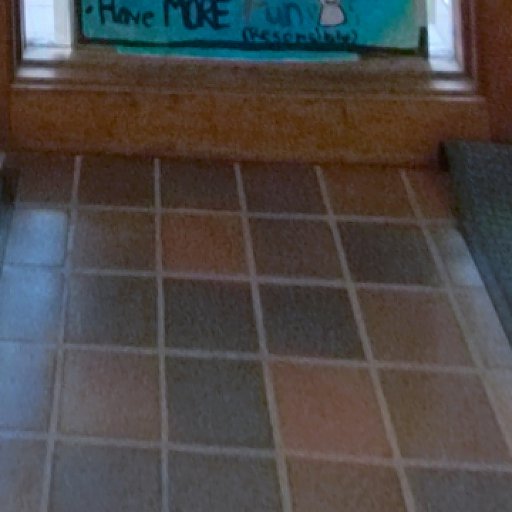 • Have MORE Fun
(Responsibly)